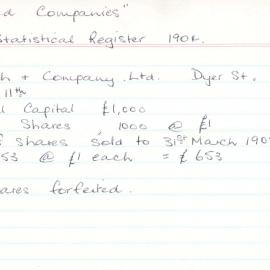 Companies"
Statistical Register 190
+ Company Ltd. Dyer St.
11th
Capital £1,000
Shares 1000 @ £1
Shares sold to 31st March 190
53 @ £1 each = £653
forfeited.